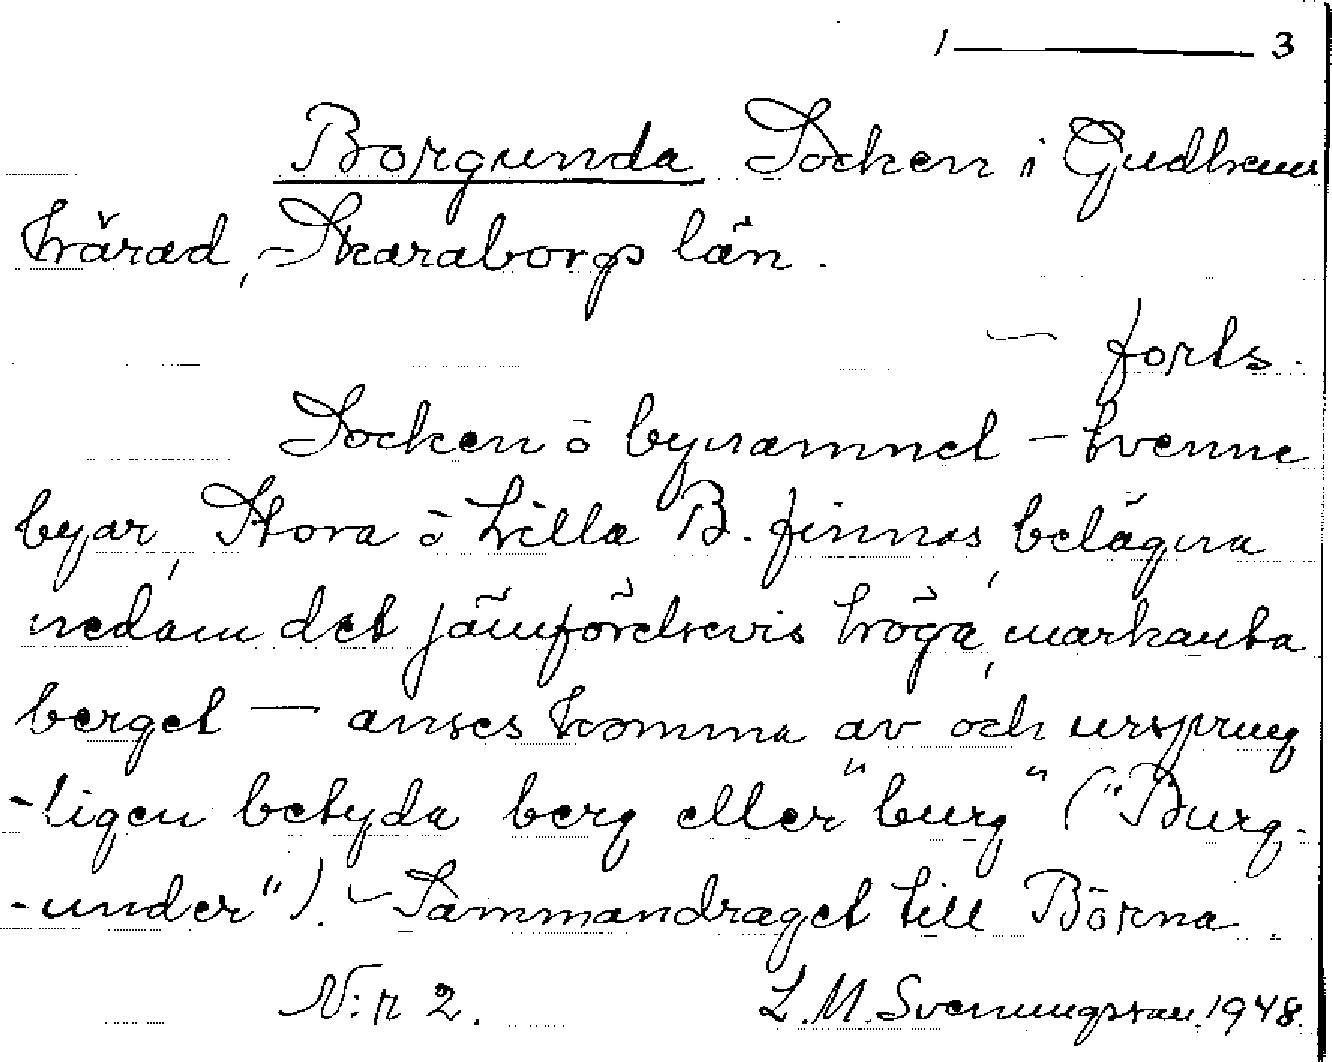 1 — 3
Borgunda Socken i Gudhems
härad, - Skaraborgs län.
— forts.
Socken o bynamnet - tvenne
byar, Stora o Lilla B. finnas, belägna
nedom det jämförelsevis höga, markanta
berget — anses komma av och ursprung
-ligen betyda berg eller "burg" ("Burg-
-under"). - Sammandraget till Börna.
N:r 2. L. M. Svenungsson. 1948.